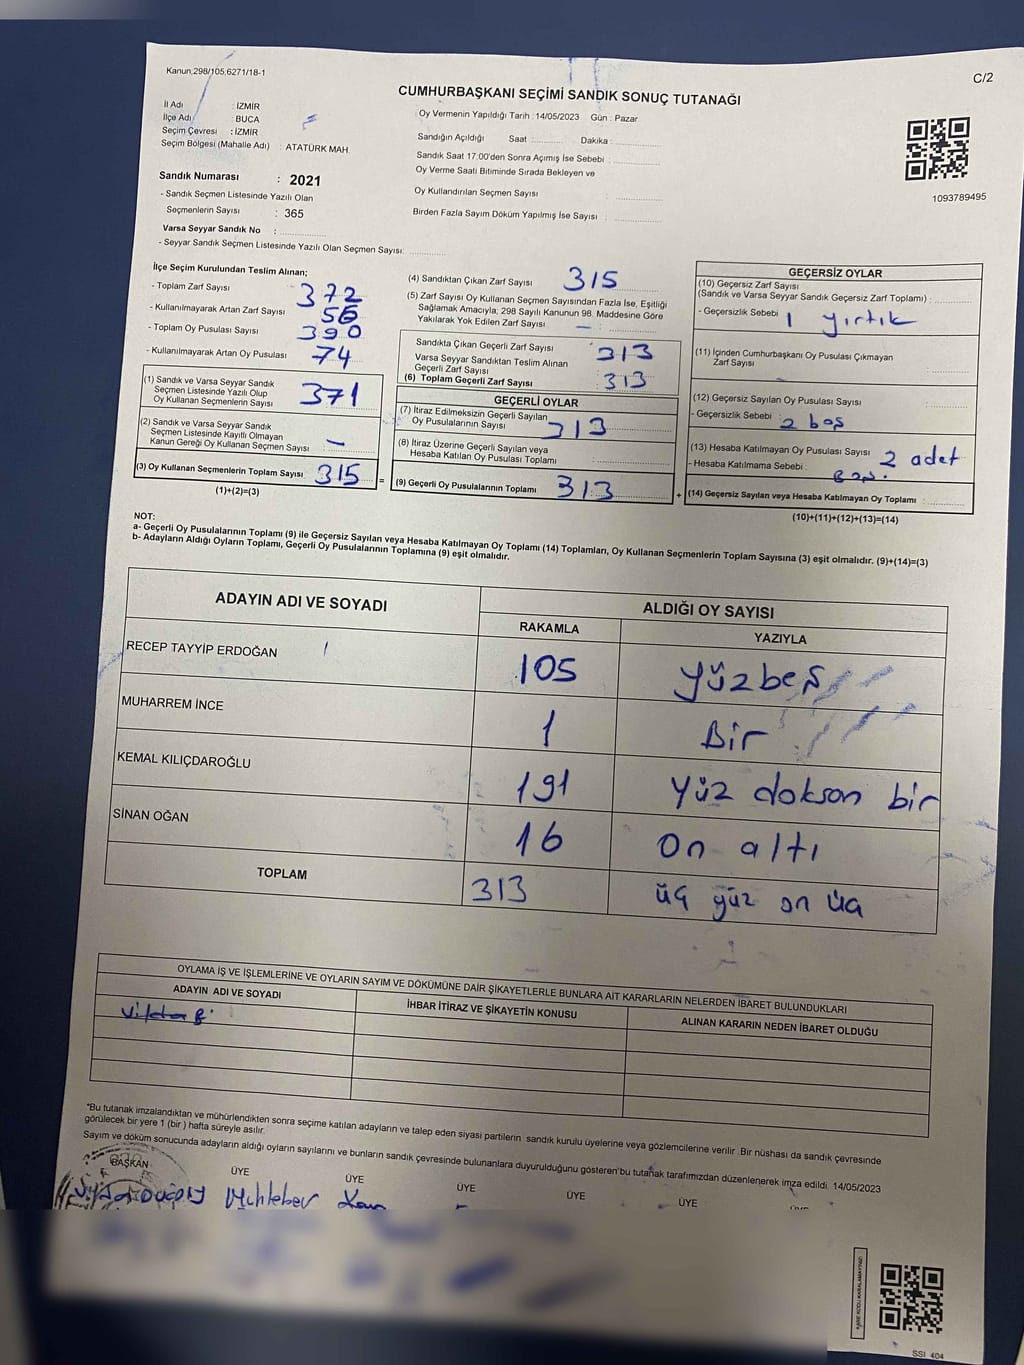 Kanun;298/105;6271/18-1
C/2
CUMHURBAŞKANI SEÇİMİ SANDIK SONUÇ TUTANAĞI
İl Adı : İZMİR
İlçe Adı : BUCA
Seçim Çevresi : İZMİR
Seçim Bölgesi (Mahalle Adı) : ATATÜRK MAH.
Oy Vermenin Yapıldığı Tarih : 14/05/2023 Gün : Pazar
Sandığın Açıldığı Saat : Dakika :
Sandık Saat 17:00'den Sonra Açımış İse Sebebi :
Oy Verme Saati Bitiminde Sırada Bekleyen ve
Oy Kullandırılan Seçmen Sayısı :
Birden Fazla Sayım Döküm Yapılmış İse Sayısı :
1093789495
Sandık Numarası : 2021
- Sandık Seçmen Listesinde Yazılı Olan
Seçmenlerin Sayısı : 365
Varsa Seyyar Sandık No :
- Seyyar Sandık Seçmen Listesinde Yazılı Olan Seçmen Sayısı:
İlçe Seçim Kurulundan Teslim Alınan;
- Toplam Zarf Sayısı 372
- Kullanılmayarak Artan Zarf Sayısı : 56
- Toplam Oy Pusulası Sayısı : 390
- Kullanılmayarak Artan Oy Pusulası : 74
(1) Sandık ve Varsa Seyyar Sandık
Seçmen Listesinde Yazılı Olup
Oy Kullanan Seçmenlerin Sayısı : 371
(2) Sandık ve Varsa Seyyar Sandık
Seçmen Listesinde Kayıtlı Olmayan
Kanun Gereği Oy Kullanan Seçmen Sayısı : –
(3) Oy Kullanan Seçmenlerin Toplam Sayısı : 315
(1)+(2)=(3)
=
(4) Sandıktan Çıkan Zarf Sayısı : 315
(5) Zarf Sayısı Oy Kullanan Seçmen Sayısından Fazla İse, Eşitliği
Sağlamak Amacıyla; 298 Sayılı Kanunun 98. Maddesine Göre
Yakılarak Yok Edilen Zarf Sayısı : –
Sandıkta Çıkan Geçerli Zarf Sayısı : 313
Varsa Seyyar Sandıktan Teslim Alınan
Geçerli Zarf Sayısı :
(6) Toplam Geçerli Zarf Sayısı : 313
GEÇERLİ OYLAR
(7) İtiraz Edilmeksizin Geçerli Sayılan
Oy Pusulalarının Sayısı : 313
(8) İtiraz Üzerine Geçerli Sayılan veya
Hesaba Katılan Oy Pusulası Toplamı :
(9) Geçerli Oy Pusulalarının Toplamı : 313
+
GEÇERSİZ OYLAR
(10) Geçersiz Zarf Sayısı
(Sandık ve Varsa Seyyar Sandık Geçersiz Zarf Toplamı) :
- Geçersizlik Sebebi : 1 yırtık
(11) İçinden Cumhurbaşkanı Oy Pusulası Çıkmayan
Zarf Sayısı :
(12) Geçersiz Sayılan Oy Pusulası Sayısı :
- Geçersizlik Sebebi : 2 boş
(13) Hesaba Katılmayan Oy Pusulası Sayısı : 2 adet
- Hesaba Katılmama Sebebi :
(14) Geçersiz Sayılan veya Hesaba Katılmayan Oy Toplamı :
(10)+(11)+(12)+(13)=(14)
NOT:
a- Geçerli Oy Pusulalarının Toplamı (9) ile Geçersiz Sayılan veya Hesaba Katılmayan Oy Toplamı (14) Toplamları, Oy Kullanan Seçmenlerin Toplam Sayısına (3) eşit olmalıdır. (9)+(14)=(3)
b- Adayların Aldığı Oyların Toplamı, Geçerli Oy Pusulalarının Toplamına (9) eşit olmalıdır.
ADAYIN ADI VE SOYADI ALDIĞI OY SAYISI
RAKAMLA YAZIYLA
RECEP TAYYİP ERDOĞAN 105 yüzbeş
MUHARREM İNCE 1 Bir
KEMAL KILIÇDAROĞLU 191 yüz dokson bir
SİNAN OĞAN 16 On altı
TOPLAM 313 üç yüz on üç
OYLAMA İŞ VE İŞLEMLERİNE VE OYLARIN SAYIM VE DÖKÜMÜNE DAİR ŞİKAYETLERLE BUNLARA AİT KARARLARIN NELERDEN İBARET BULUNDUKLARI
ADAYIN ADI VE SOYADI İHBAR İTİRAZ VE ŞİKAYETİN KONUSU ALINAN KARARIN NEDEN İBARET OLDUĞU
*Bu tutanak imzalandıktan ve mühürlendikten sonra seçime katılan adayların ve talep eden siyasi partilerin sandık kurulu üyelerine veya gözlemcilerine verilir. Bir nüshası da sandık çevresinde
görülecek bir yere 1 (bir) hafta süreyle asılır.
Sayım ve döküm sonucunda adayların aldığı oyların sayılarını ve bunların sandık çevresinde bulunanlara duyurulduğunu gösteren bu tutanak tarafımızdan düzenlenerek imza edildi. 14/05/2023
BAŞKAN ÜYE ÜYE ÜYE ÜYE ÜYE
SSI 404